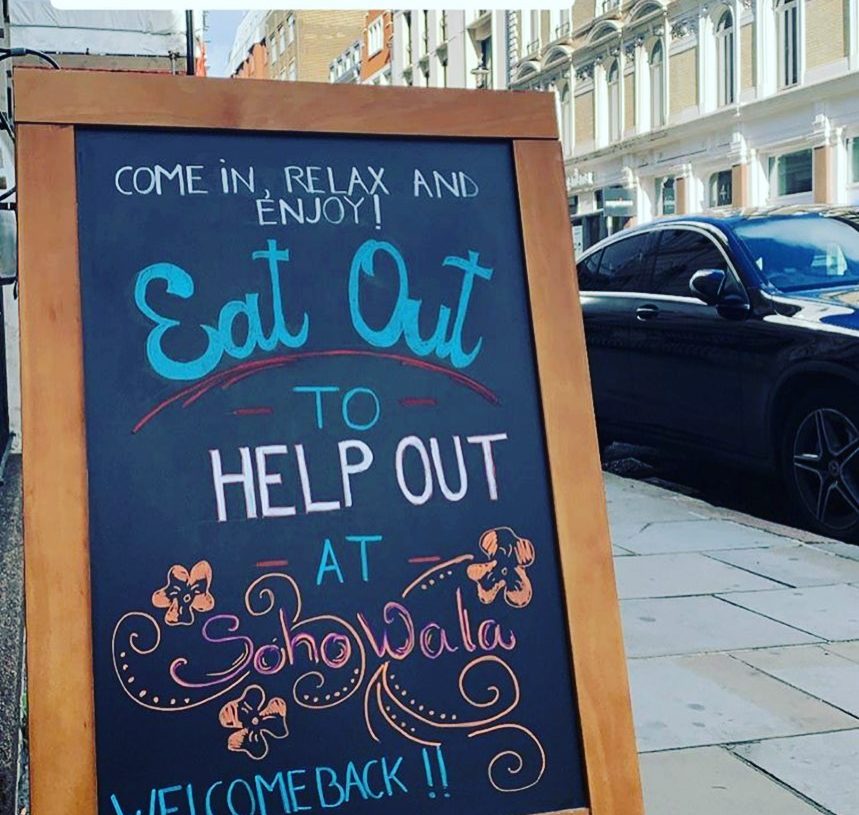 COME iN, RELAX AND
ENJOY!
Eat Out
- TO -
HELP OUT
- AT -
Soho Wala
WELCOME BACK !!